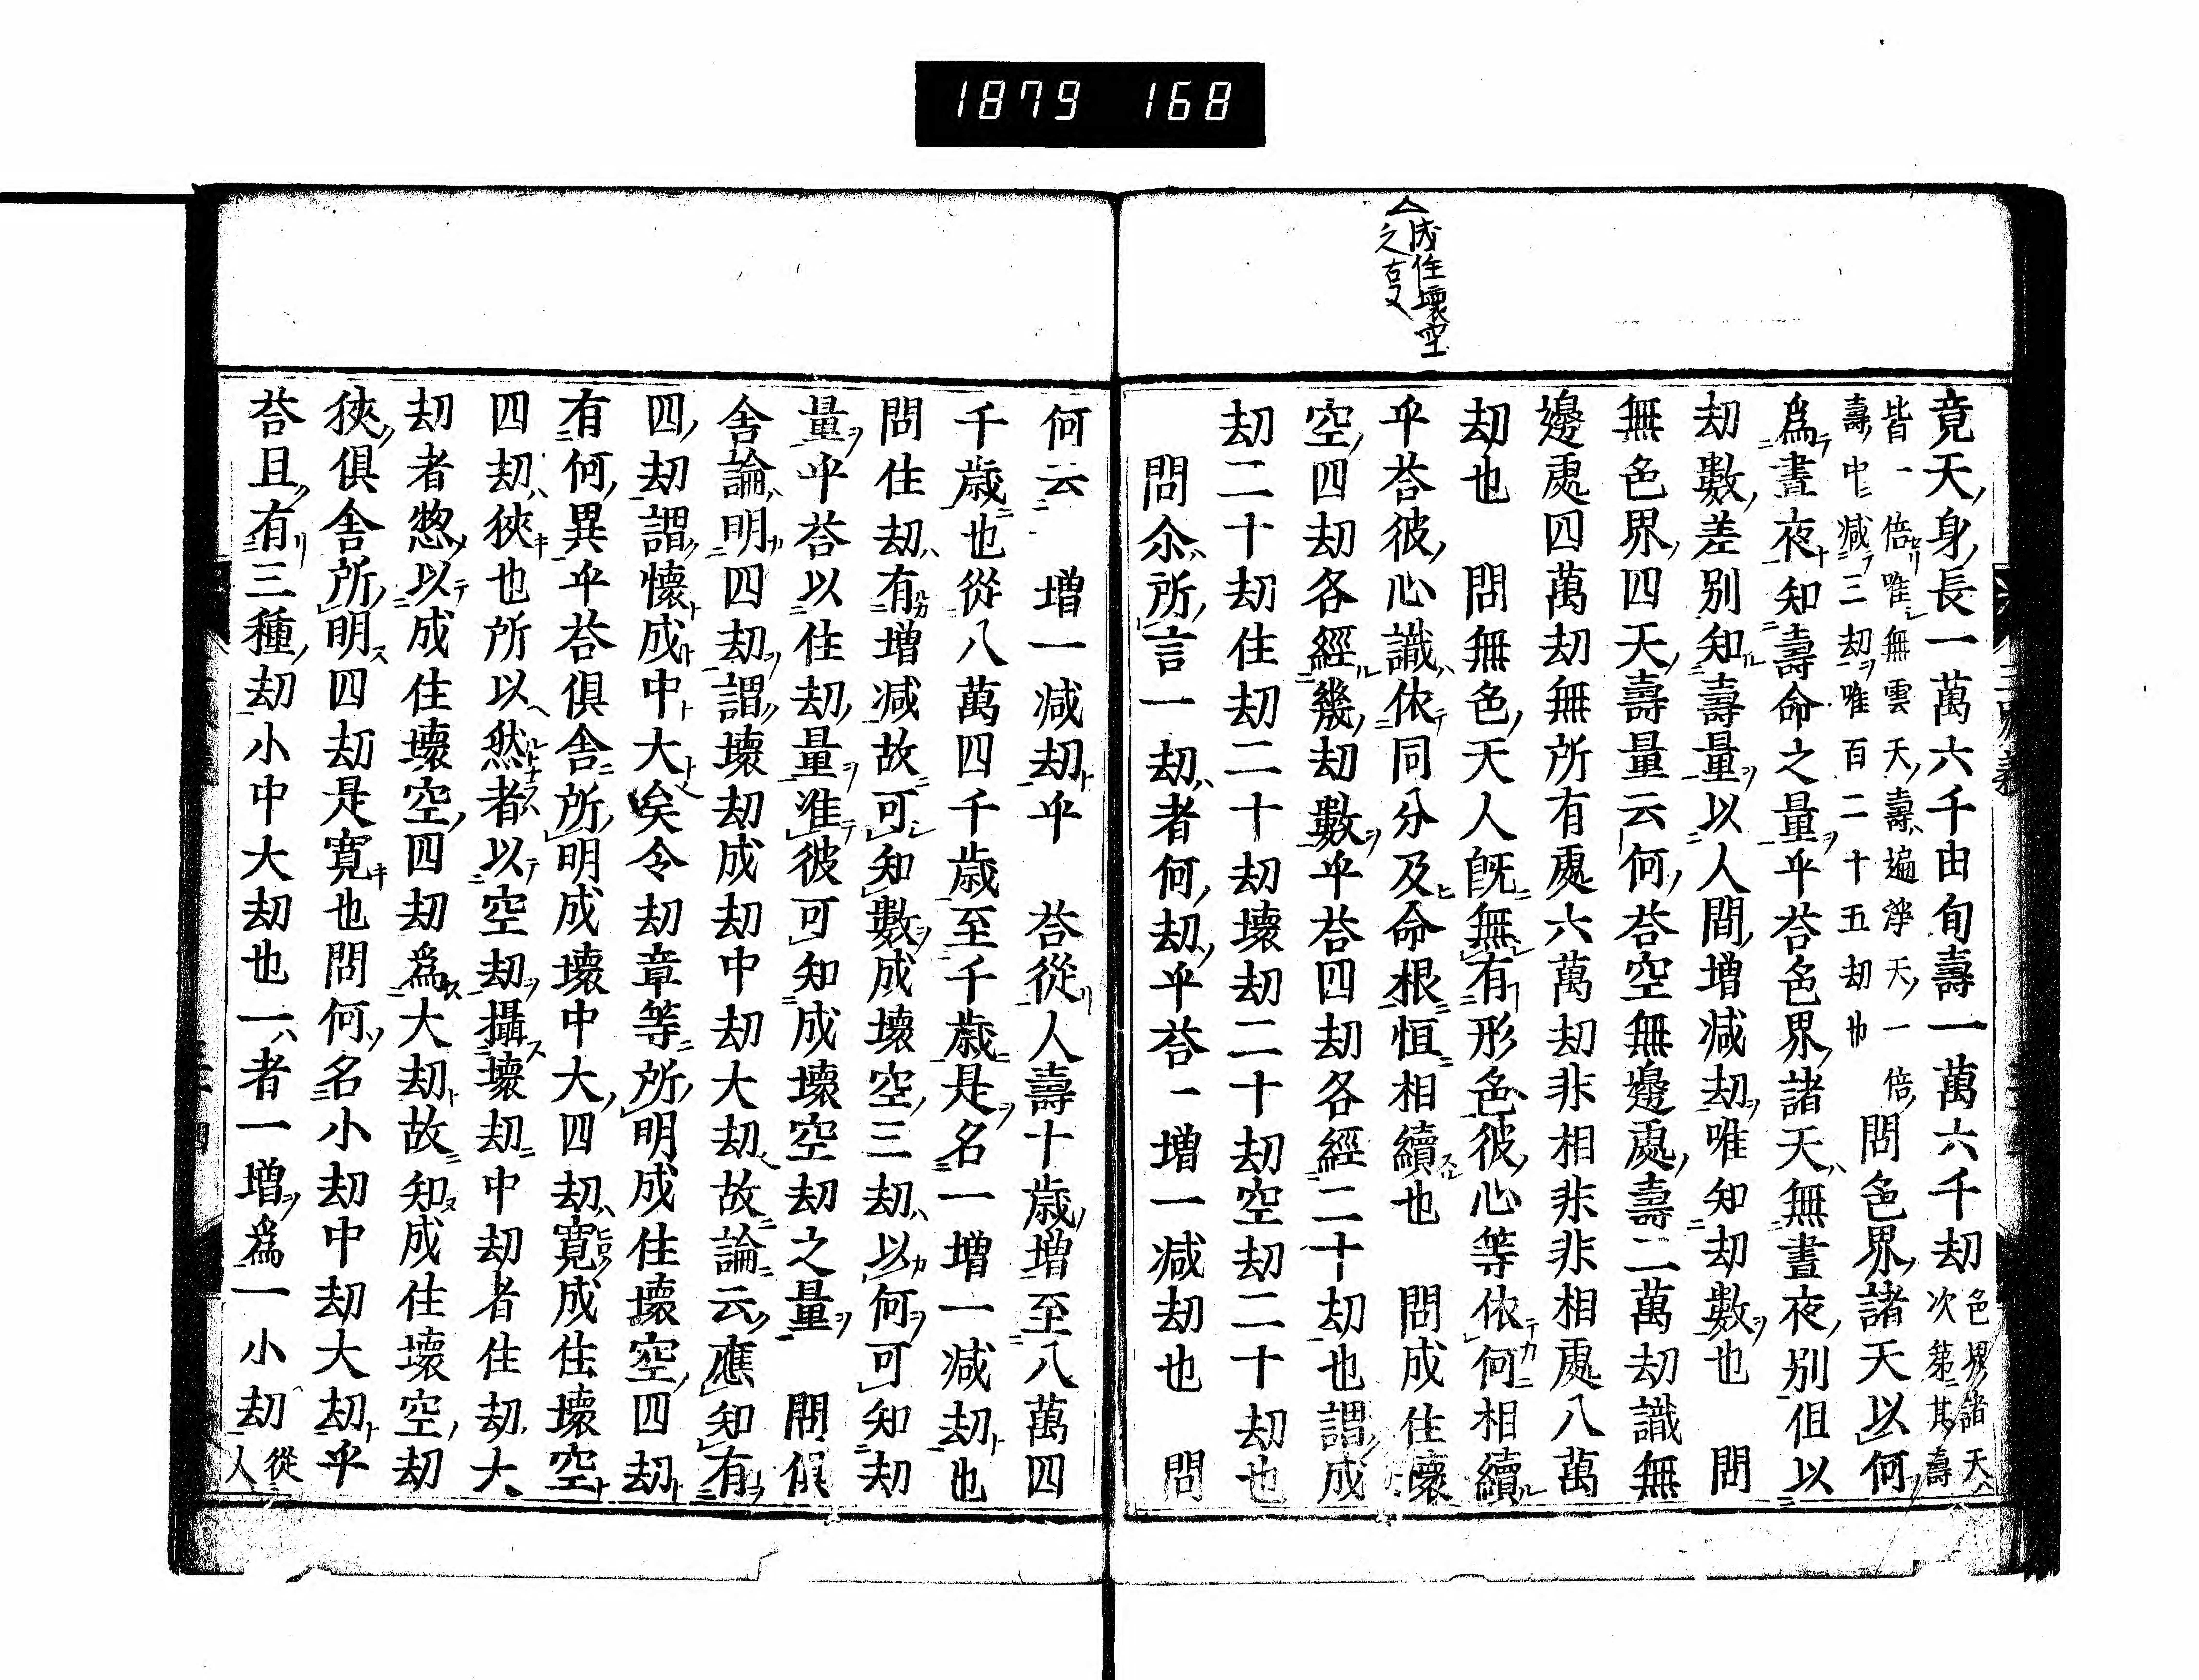 1879 168
成住壞空
之㕝
竟天身長一萬六千由旬壽一萬六千劫色界諸天次第其壽
皆一倍唯無雲天壽遍淨天一倍
壽中減三劫唯百二十五劫也
問色界諸天以何
爲晝夜知壽命之量乎荅色界諸天無晝夜別但以
劫數差別知壽量以人間增減劫唯知劫數也　問
無色界四天壽量云何荅空無邊處壽二萬劫識無
邊處四萬劫無所有處六萬劫非相非非相處八萬
劫也　問無色天人既無有形色彼心等依何相續
乎荅彼心識依同分及命根恒相續也　問成住壞
空四劫各經幾劫數乎荅四劫各經二十劫也謂成
劫二十劫住劫二十劫壞劫二十劫空劫二十劫也
問尒所言一劫者何劫乎荅一增一減劫也　問
何云　增一減劫乎　荅從人壽十歲增至八萬四
千歲也從八萬四千歲至千歲是名一增一減劫也
問住劫有增減故可知數成壞空三劫以何可知劫
量乎荅以住劫量准彼可知成壞空劫之量　問俱
舍論明四劫謂壞劫成劫中劫大劫故論云應知有
四劫謂懷成中大矣令劫章等所明成住壞空四劫
有何異乎荅俱舍所明成壞中大四劫寬成住壞空
四劫狹也所以然者以空劫攝壞劫中劫者住劫大
劫者惣以成住壞空四劫爲大劫故知成住壞空劫
狹俱舍所明四劫是寬也問何名小劫中劫大劫乎
荅且有三種劫小中大劫也一者一增爲一小劫從人